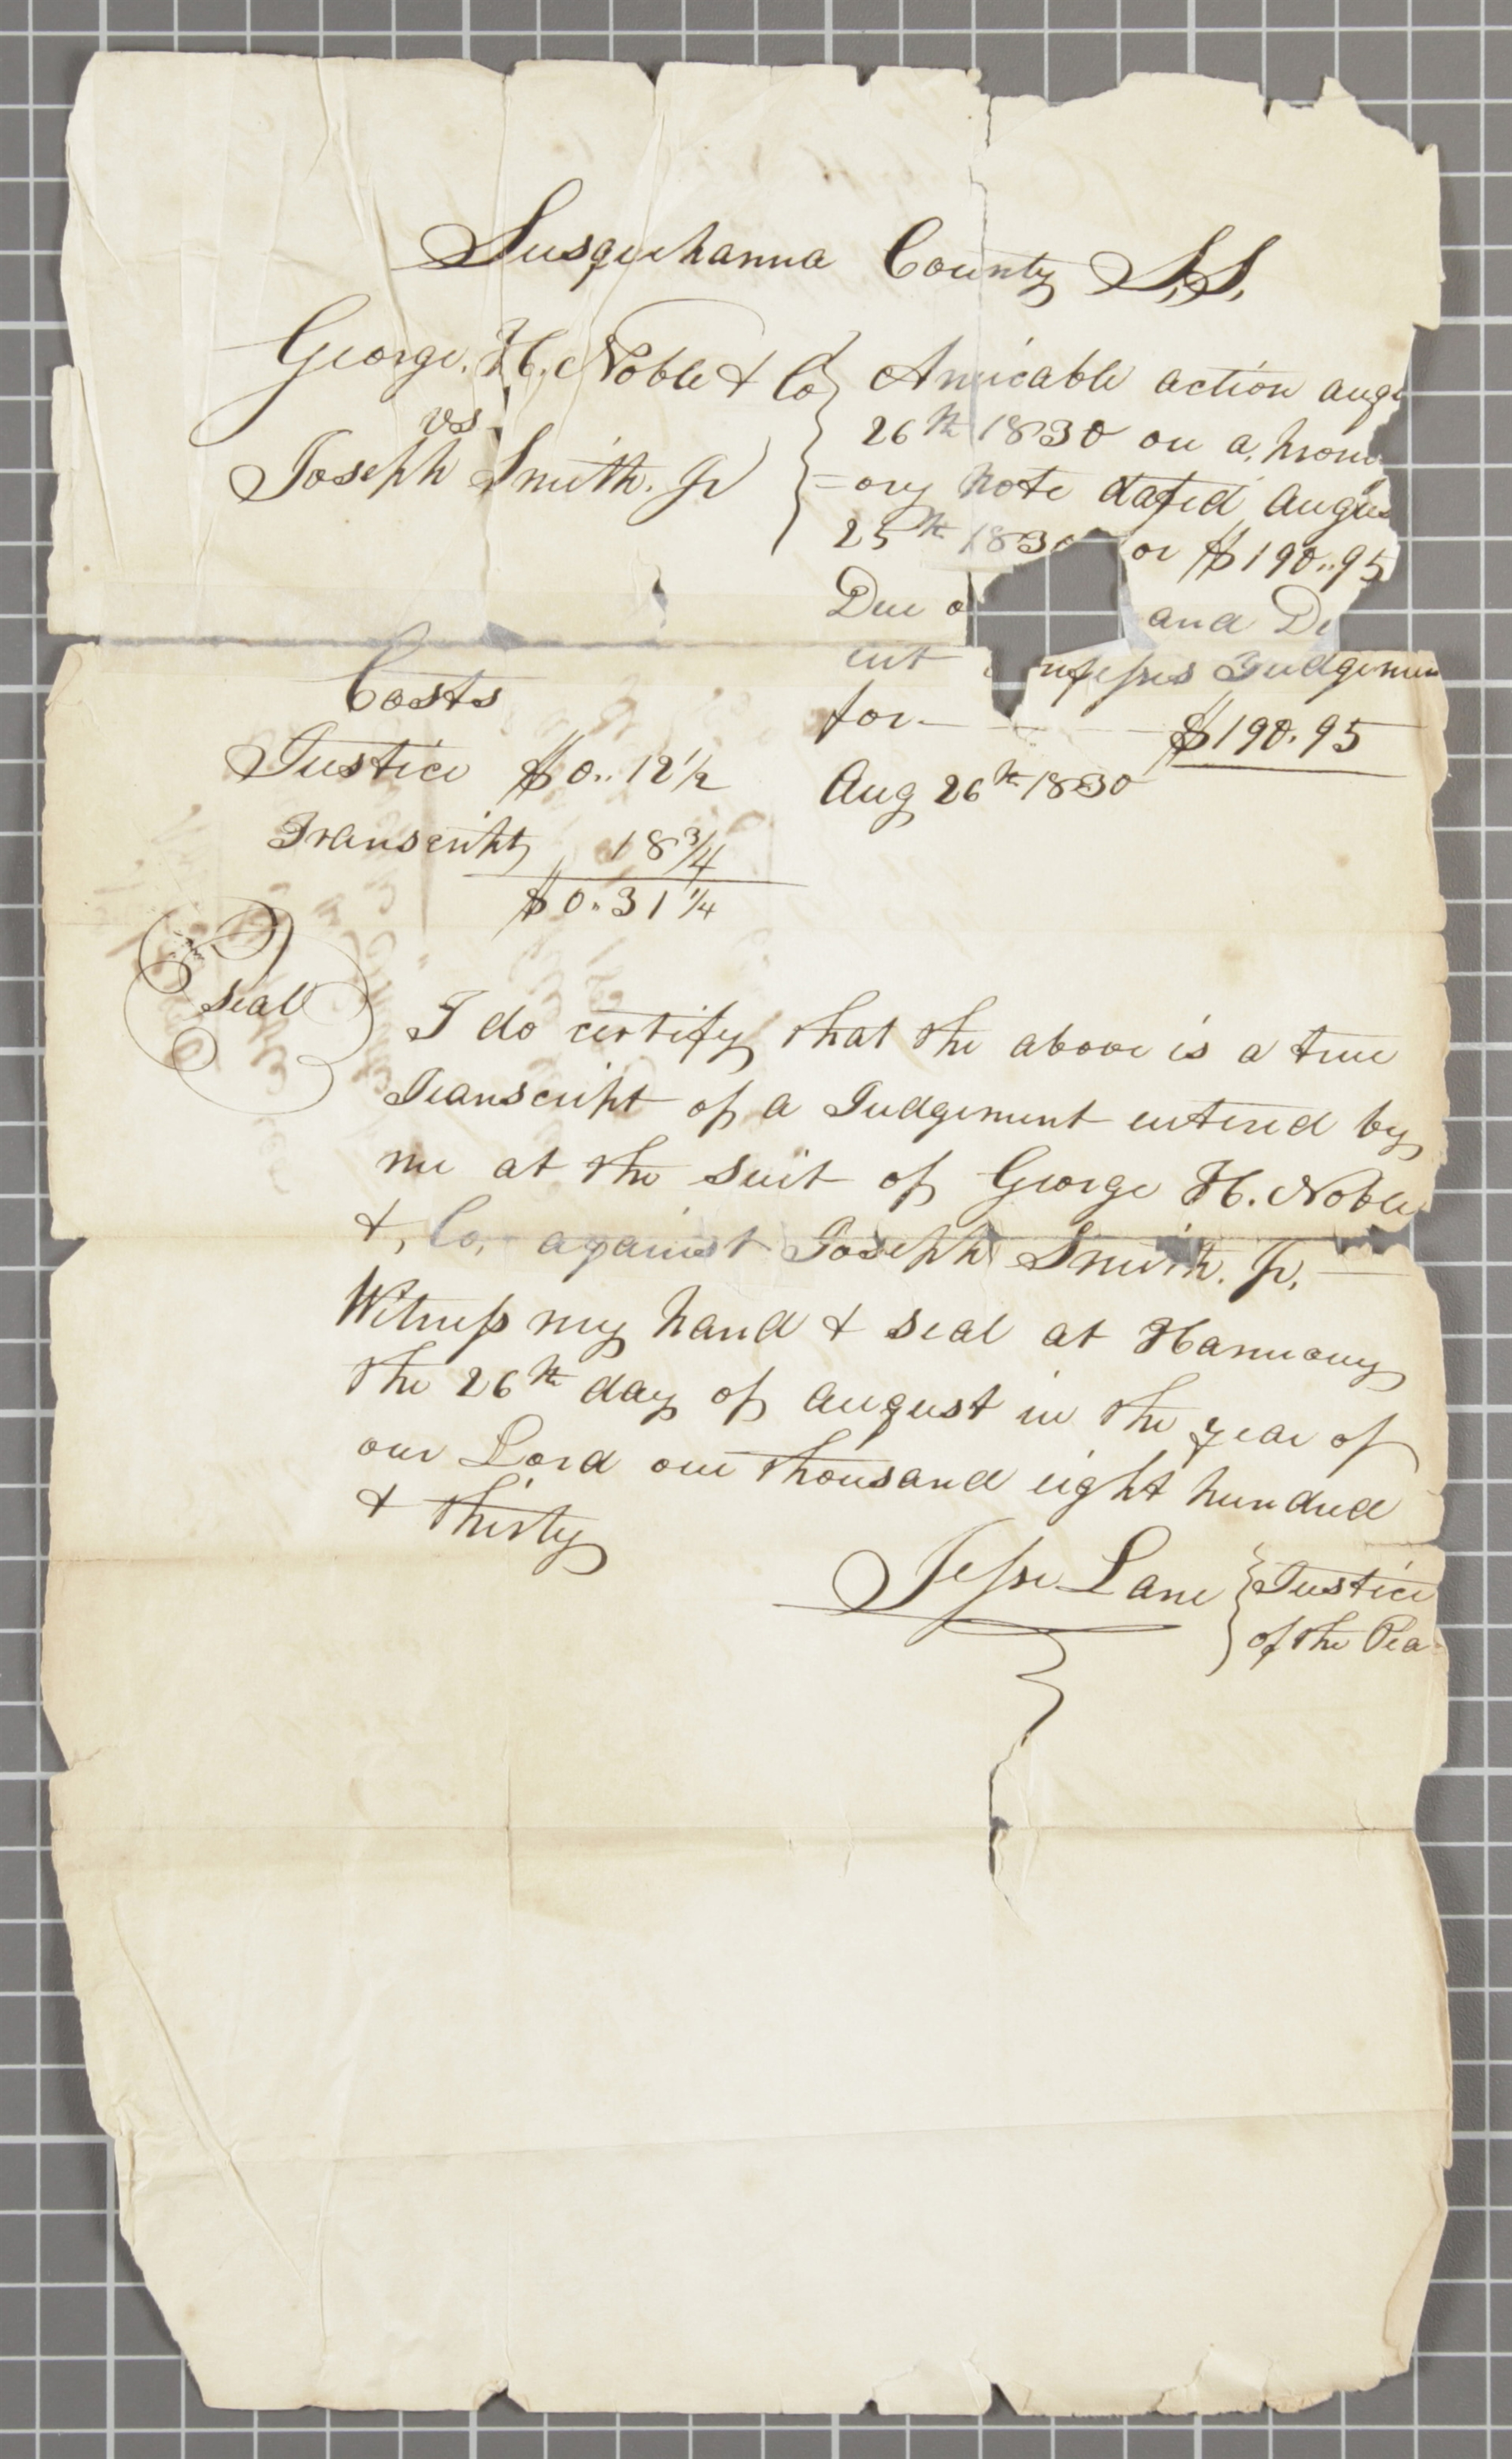 Susquehanna County S,S,
George. H. Noble & Co
vs
Joseph Smith. Jr
Amicable action aug
26th 1830 on a, prom
=ory note dated August
25th 1830 or $190..95
Due o and De
ent nfesses Judgemen
for — $190.95
Aug 26th 1830
Costs
Justice $0..12 1/2
Transcript 18 3/4
$0..31 1/4
seal
I do certify that the above is a true
Transcript of a Judgement entered by
me at the suit of George H. Noble
&, Co, against Joseph Smith. Jr, —
Witness my hand & seal at Harmony
the 26th day of August in the year of
our Lord one thousand eight hundred
& thirty
Jesse Lane Justice
of the Pea